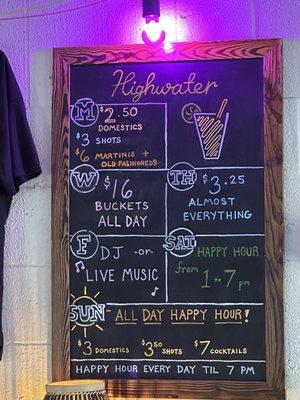 Highwater
M $2.50
DOMESTICS
$3
SHOTS
$6 MARTINIS +
OLD FASHIONEDS
W $16
BUCKETS
ALL DAY
TH $3.25
ALMOST
EVERYTHING
F DJ -or-
LIVE MUSIC
SAT HAPPY HOUR
from 1 to 7 pm
SUN -ALL DAY HAPPY HOUR!
$3 DOMESTICS $3.50 SHOTS $7 COCKTAILS
HAPPY HOUR EVERY DAY TIL 7 PM